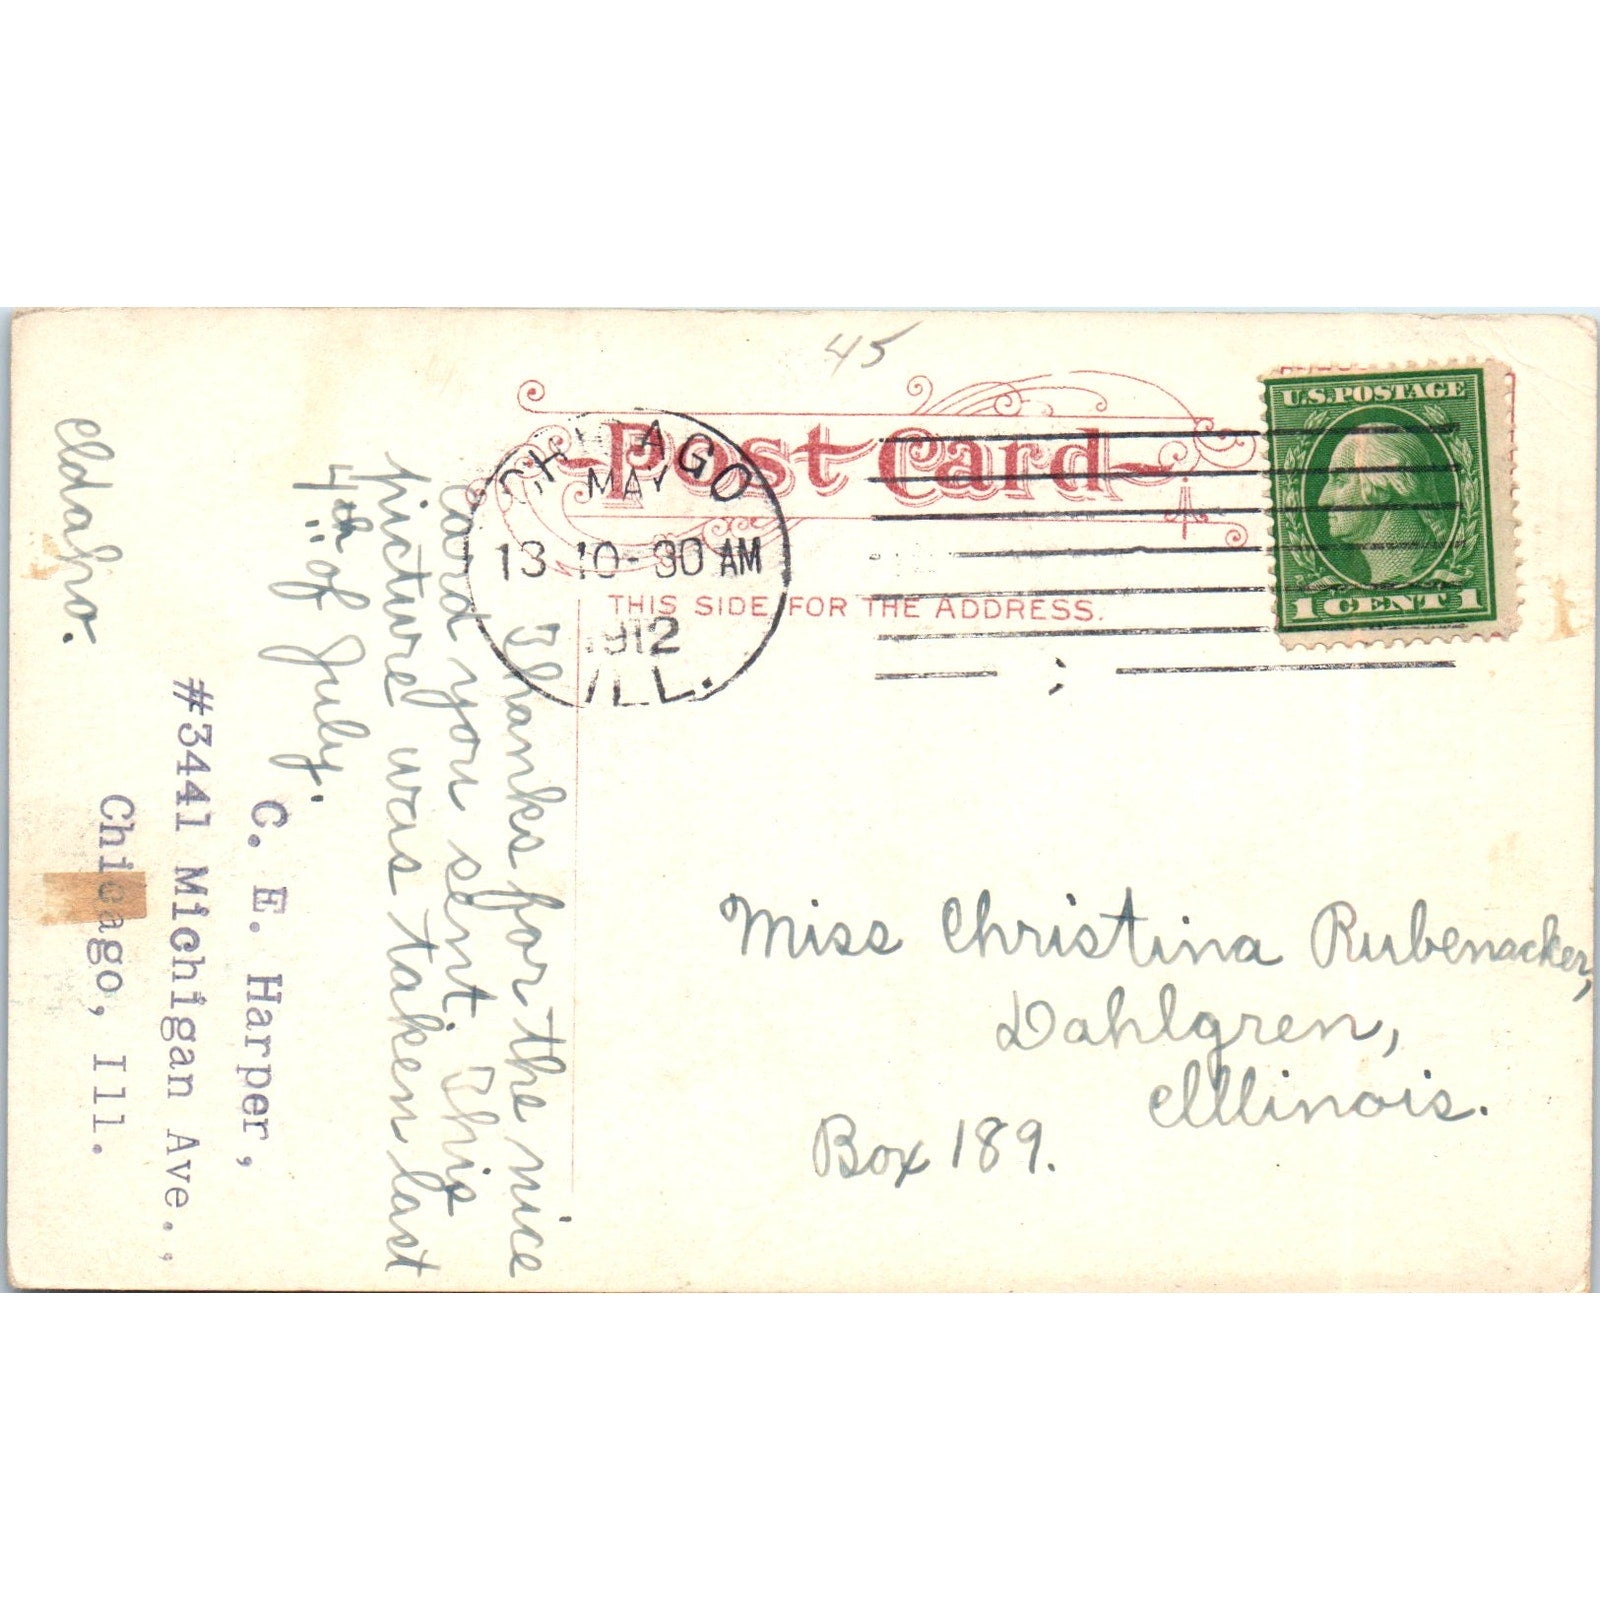 45
Post Card
THIS SIDE FOR THE ADDRESS.
CHICAGO
MAY
13 10-30 AM
1912
ILL.
U.S. POSTAGE
1 CENT 1
Miss Christina Rubenacker,
Dahlgren,
Illinois.
Box 189.
Thanks for the nice
card you sent. This
picture was taken last
4th of July.
C. E. Harper,
#3441 Michigan Ave.,
Chicago, Ill.
Idaho.